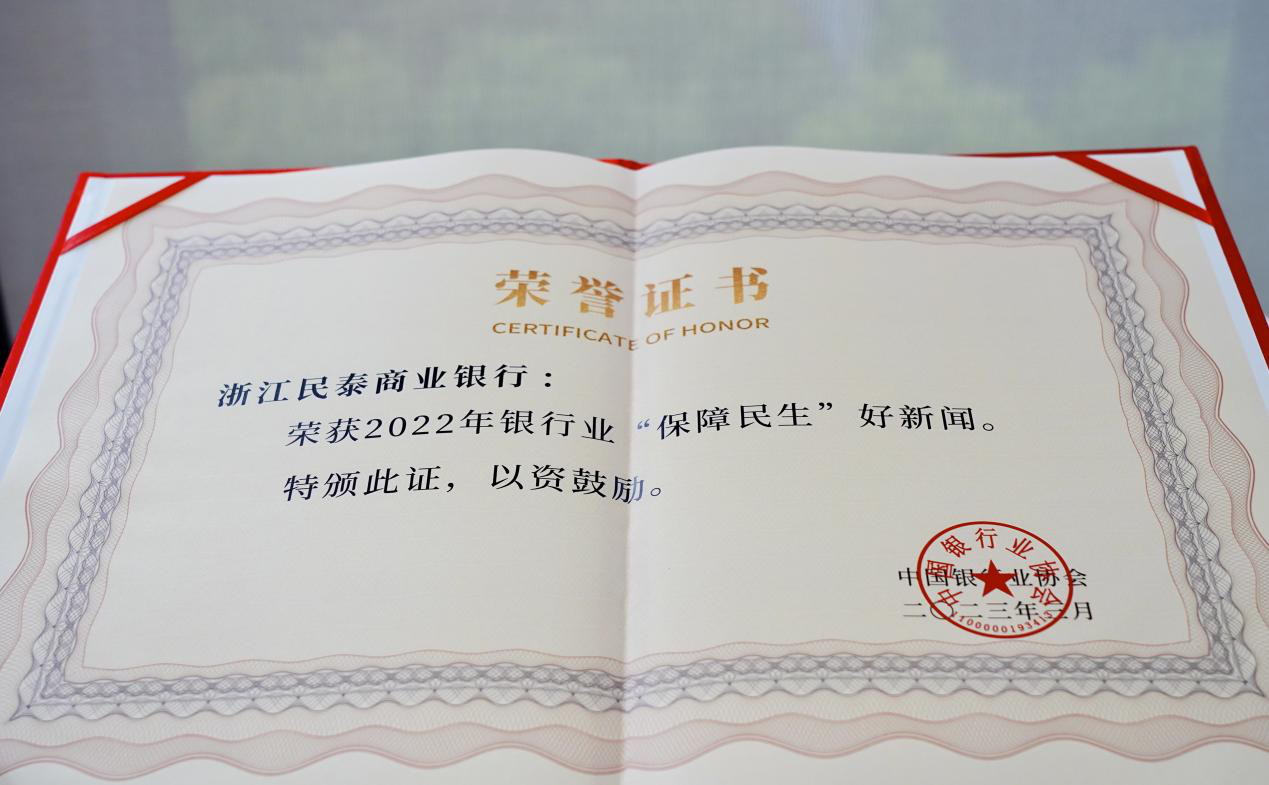 荣誉证书
CERTIFICATE OF HONOR
浙江民泰商业银行：
荣获2022年银行业“保障民生”好新闻。
特颁此证，以资鼓励。
中国银行业协会
二〇二三年三月
中国银行业协会